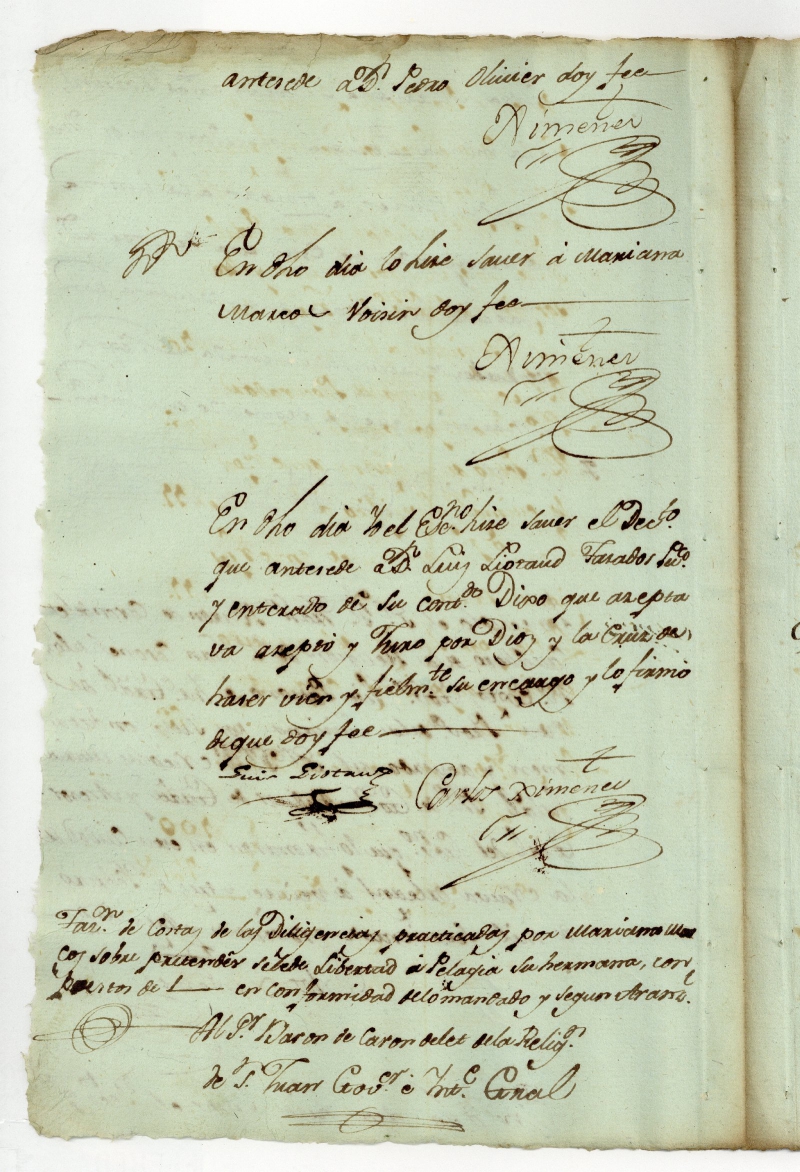 antesede a Dn. Pedro Olivier doy fee
Ximenes
En dho dia lo hise saver á Mariana
Marcos Voisin doy fee
Ximenes
En dho dia Yo el Esno. hise saver el Decto.
que antesede a Dn. Luis Liotaud Tasador Puco.
y enterado de su contdo. Dixo que asepta
va asepto y Juro por Dios y la Cruz de
haser vien y fielmte. su encargo y lo firmo
de que doy fee
Luis Liotaud
Carlos Ximenes
Tasn. de Costas de las Diligencias practicadas por Mariana Mar
cos sobre pretender se le de Libertad á Pelagia su hermana, con
puestos de en conformidad de lo mandado y segun Aranl.
Al Sr. Baron de Carondelet de la Relign.
de Sn. Juan Govor. é Inte. Gral